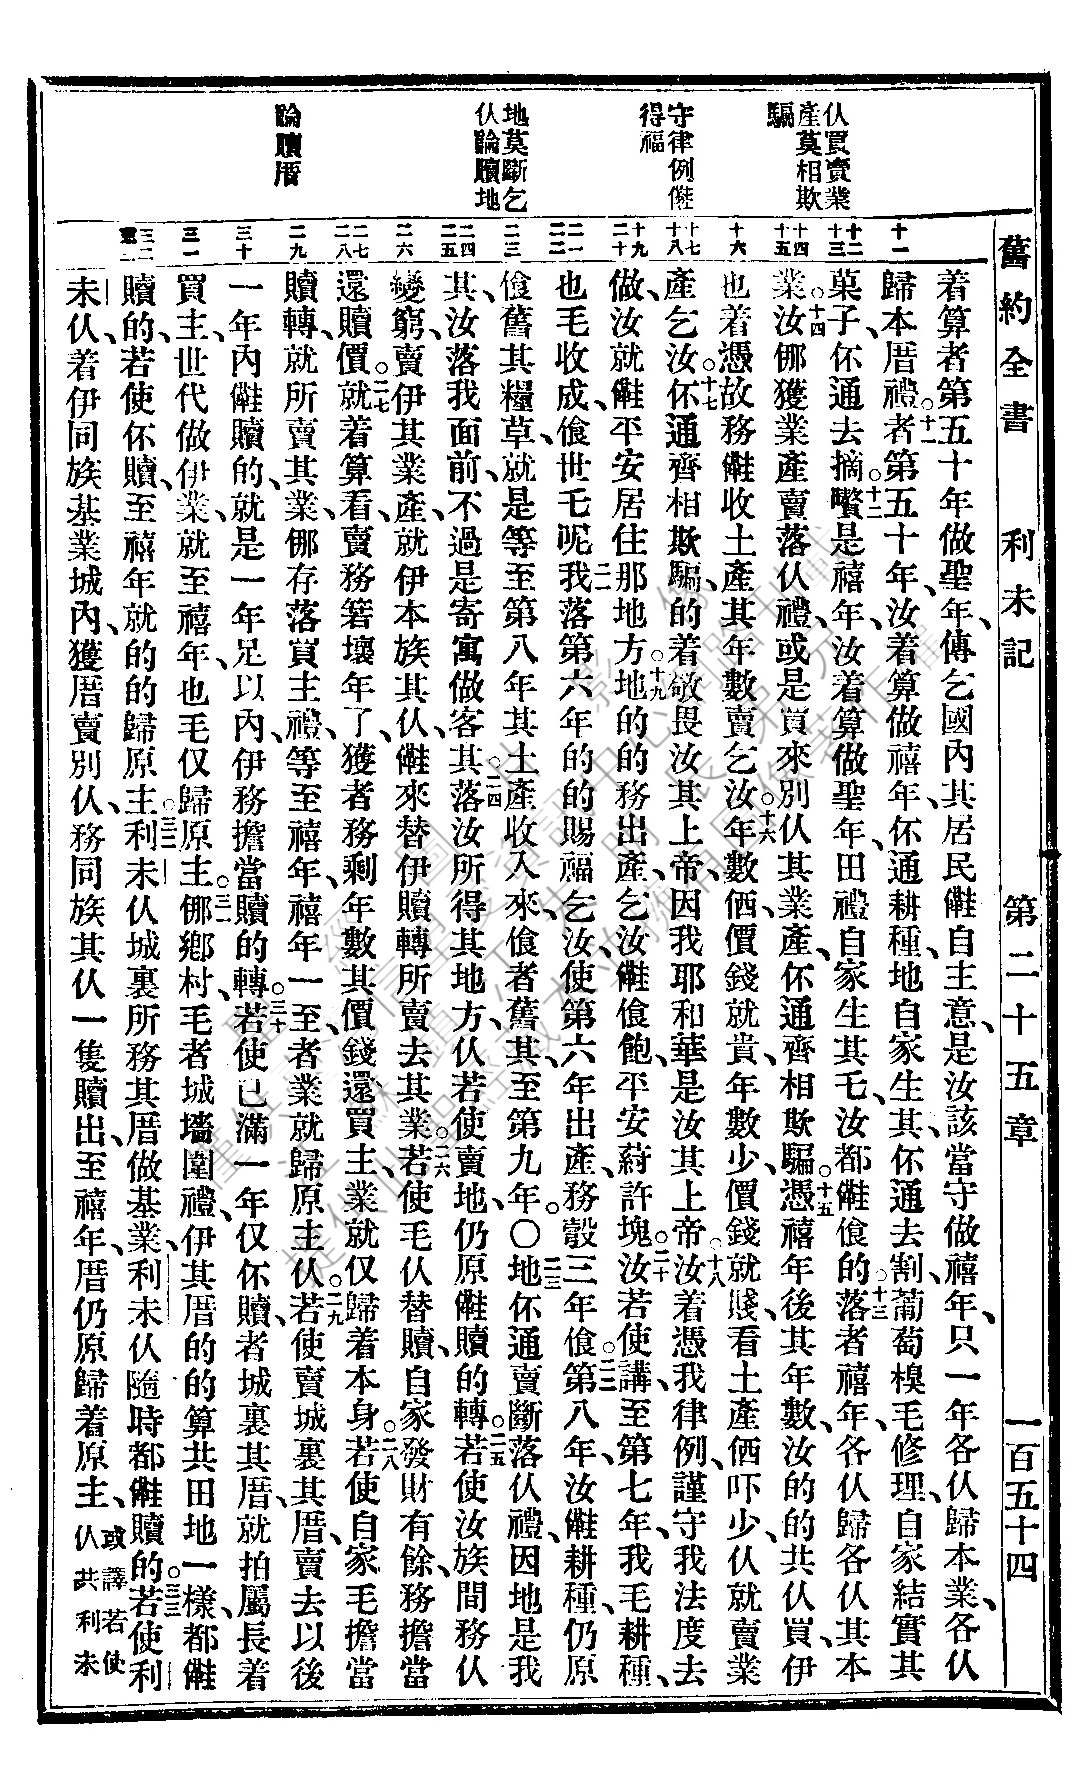 舊約全書　利未記　第二十五章　一百五十四
仏買賣業
產莫相欺
騙
守律例僅
得福
地莫斷乞
仏論贖地
論贖厝
十一
十二
十三
十四
十五
十六
十七
十八
十九
二十
二一
二二
二三
二四
二五
二六
二七
二八
二九
三十
三一
三二
着算者第五十年做聖年、傳乞國內其居民僅自主意、是汝該當守做禧年、只一年各仏歸本業、各仏
歸本厝禮。十一者第五十年、汝着算做禧年、伓通耕種、地自家生其伓通去割、葡萄模毛修理、自家結實其
菓子、伓通去摘、十二嚽是禧年、汝着算做聖年、田禮自家生其乇、汝都僅飡的、十三落者禧年、各仏歸各仏其本
業、十四汝倗獲業產賣落仏禮、或是買來別仏其業產、伓通齊相欺騙。十五憑禧年後其年數、汝的的共仏買、伊
也着憑故務僅收土產其年數賣乞汝。十六年數価價錢就貴、年數少、價錢就賤、看土產価吓少、仏就賣業
產乞汝。十七伓通齊相欺騙、的着敬畏汝其上帝、因我耶和華是汝其上帝。十八汝着憑我律例、謹守我法度去
做、汝就僅平安居住那地方。十九地的的務出產、乞汝僅飡飽、平安蒔許塊。二十汝若使講、至第七年、我毛耕種、
也毛收成、飡世乇呢、二一我落第六年的的賜福乞汝、使第六年出產、務彀三年飡。二二第八年、汝僅耕種、仍原
飡舊其糧草、就是等至第八年其土產收入來、飡者舊其、至第九年。〇二三地伓通賣斷落仏禮、因地是我
其、汝落我面前、不過是寄寓做客其。二四落汝所得其地方、仏若使賣地、仍原僅贖的轉。二五若使汝族間務仏
變窮、賣伊其業產、就伊本族其仏、僅來替伊贖轉所賣去其業。二六若使毛仏替贖、自家發財有餘、務擔當
還贖價、二七就着算看、賣務箬壞年了、獲者務剩年數其價錢、還買主、業就仅歸着本身。二八若使自家毛擔當
贖轉、就所賣其業、倗存落買主禮、等至禧年、禧年一至、者業就歸原主仏。二九若使賣城裏其厝、賣去以後
一年內僅贖的、就是一年足以內、伊務擔當贖的轉。三十若使已滿一年仅伓贖、者城裏其厝、就拍屬長着
買主、世代做伊業、就至禧年、也毛仅歸原主。三一倗鄉村、毛者城墻圍禮、伊其厝的的算共田地一樣、都僅
贖的、若使伓贖、至禧年就的的歸原主。三二利未仏城裏所務其厝做基業、利未仏隨時都僅贖的。三三若使利
未仏、着伊同族基業城內、獲厝賣別仏、務同族其仏一隻贖出、至禧年、厝仍原歸着原主、或譯若使
仏共利未